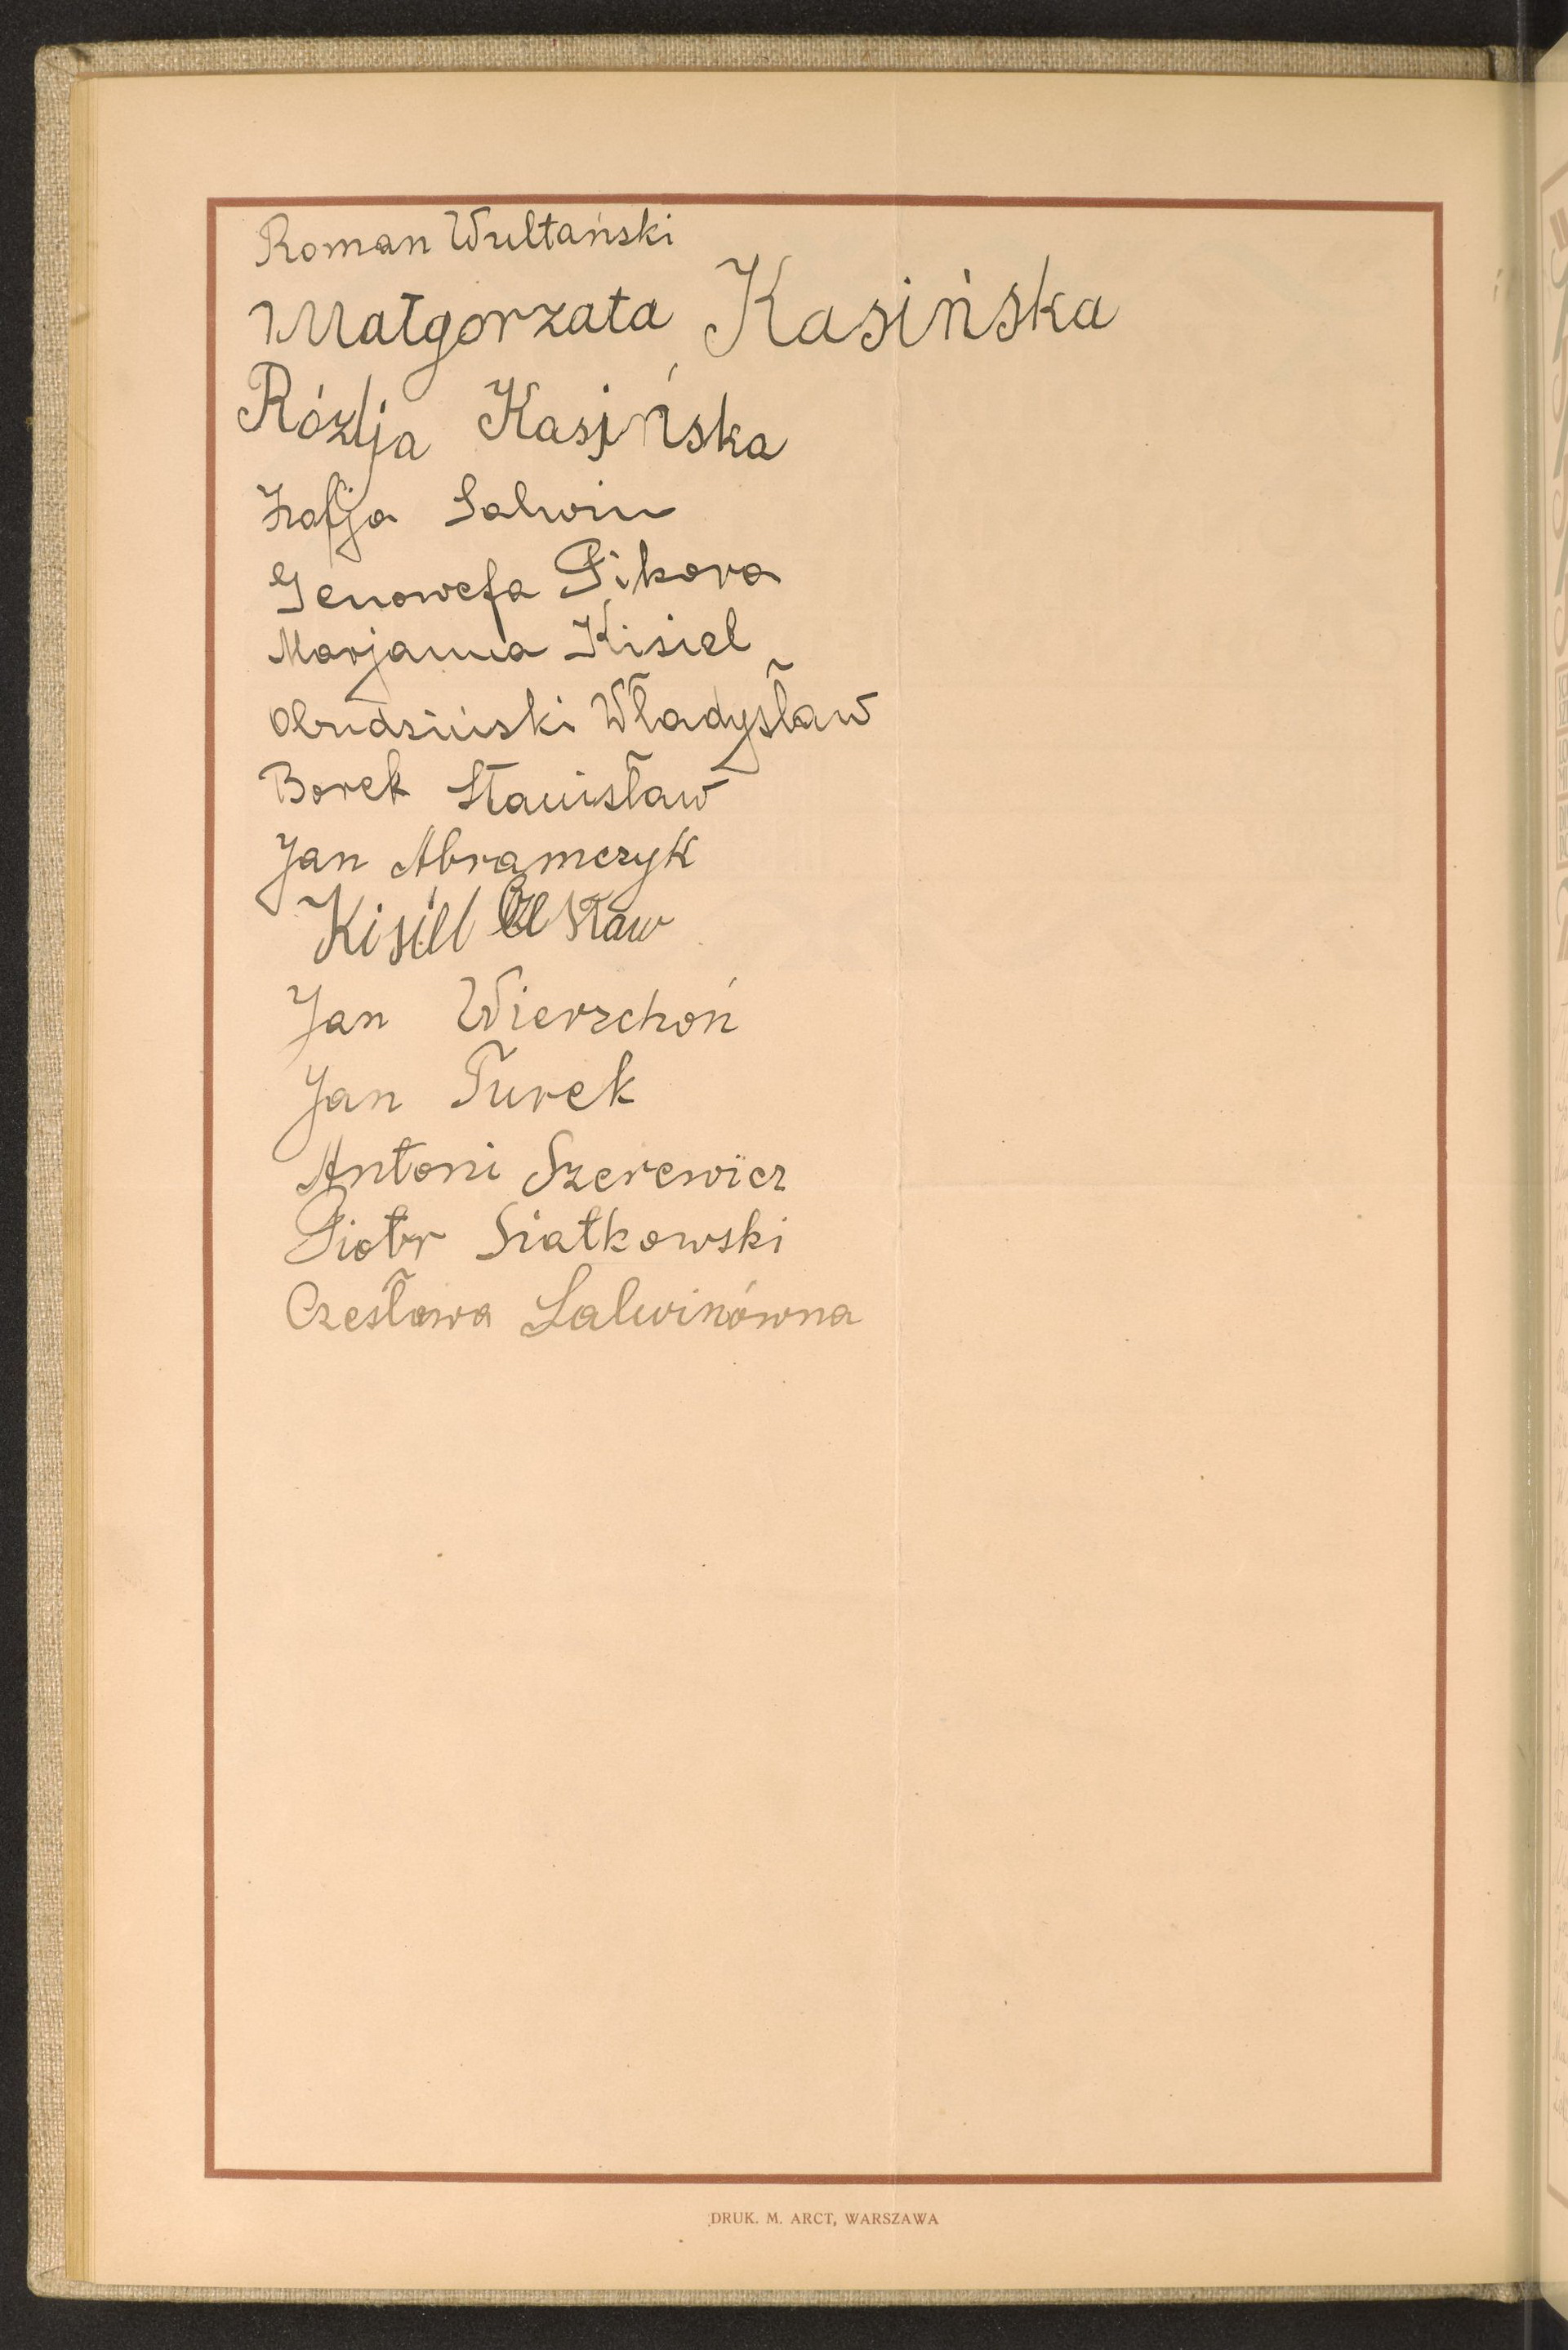 Roman Wultański
Małgorzata Kasińska
Rózlja Kasińska
Zofja Salwin
Genowefa Pikora
Marjanna Kisiel
Obudziński Władysław
Borek Stanisław
Jan Abramczyk
Kisiel
Jan Wierzchoń
Jan Turek
Antoni Szerewicz
Piotr Siatkowski
Czesława Salwinówna
DRUK. M. ARCT, WARSZAWA